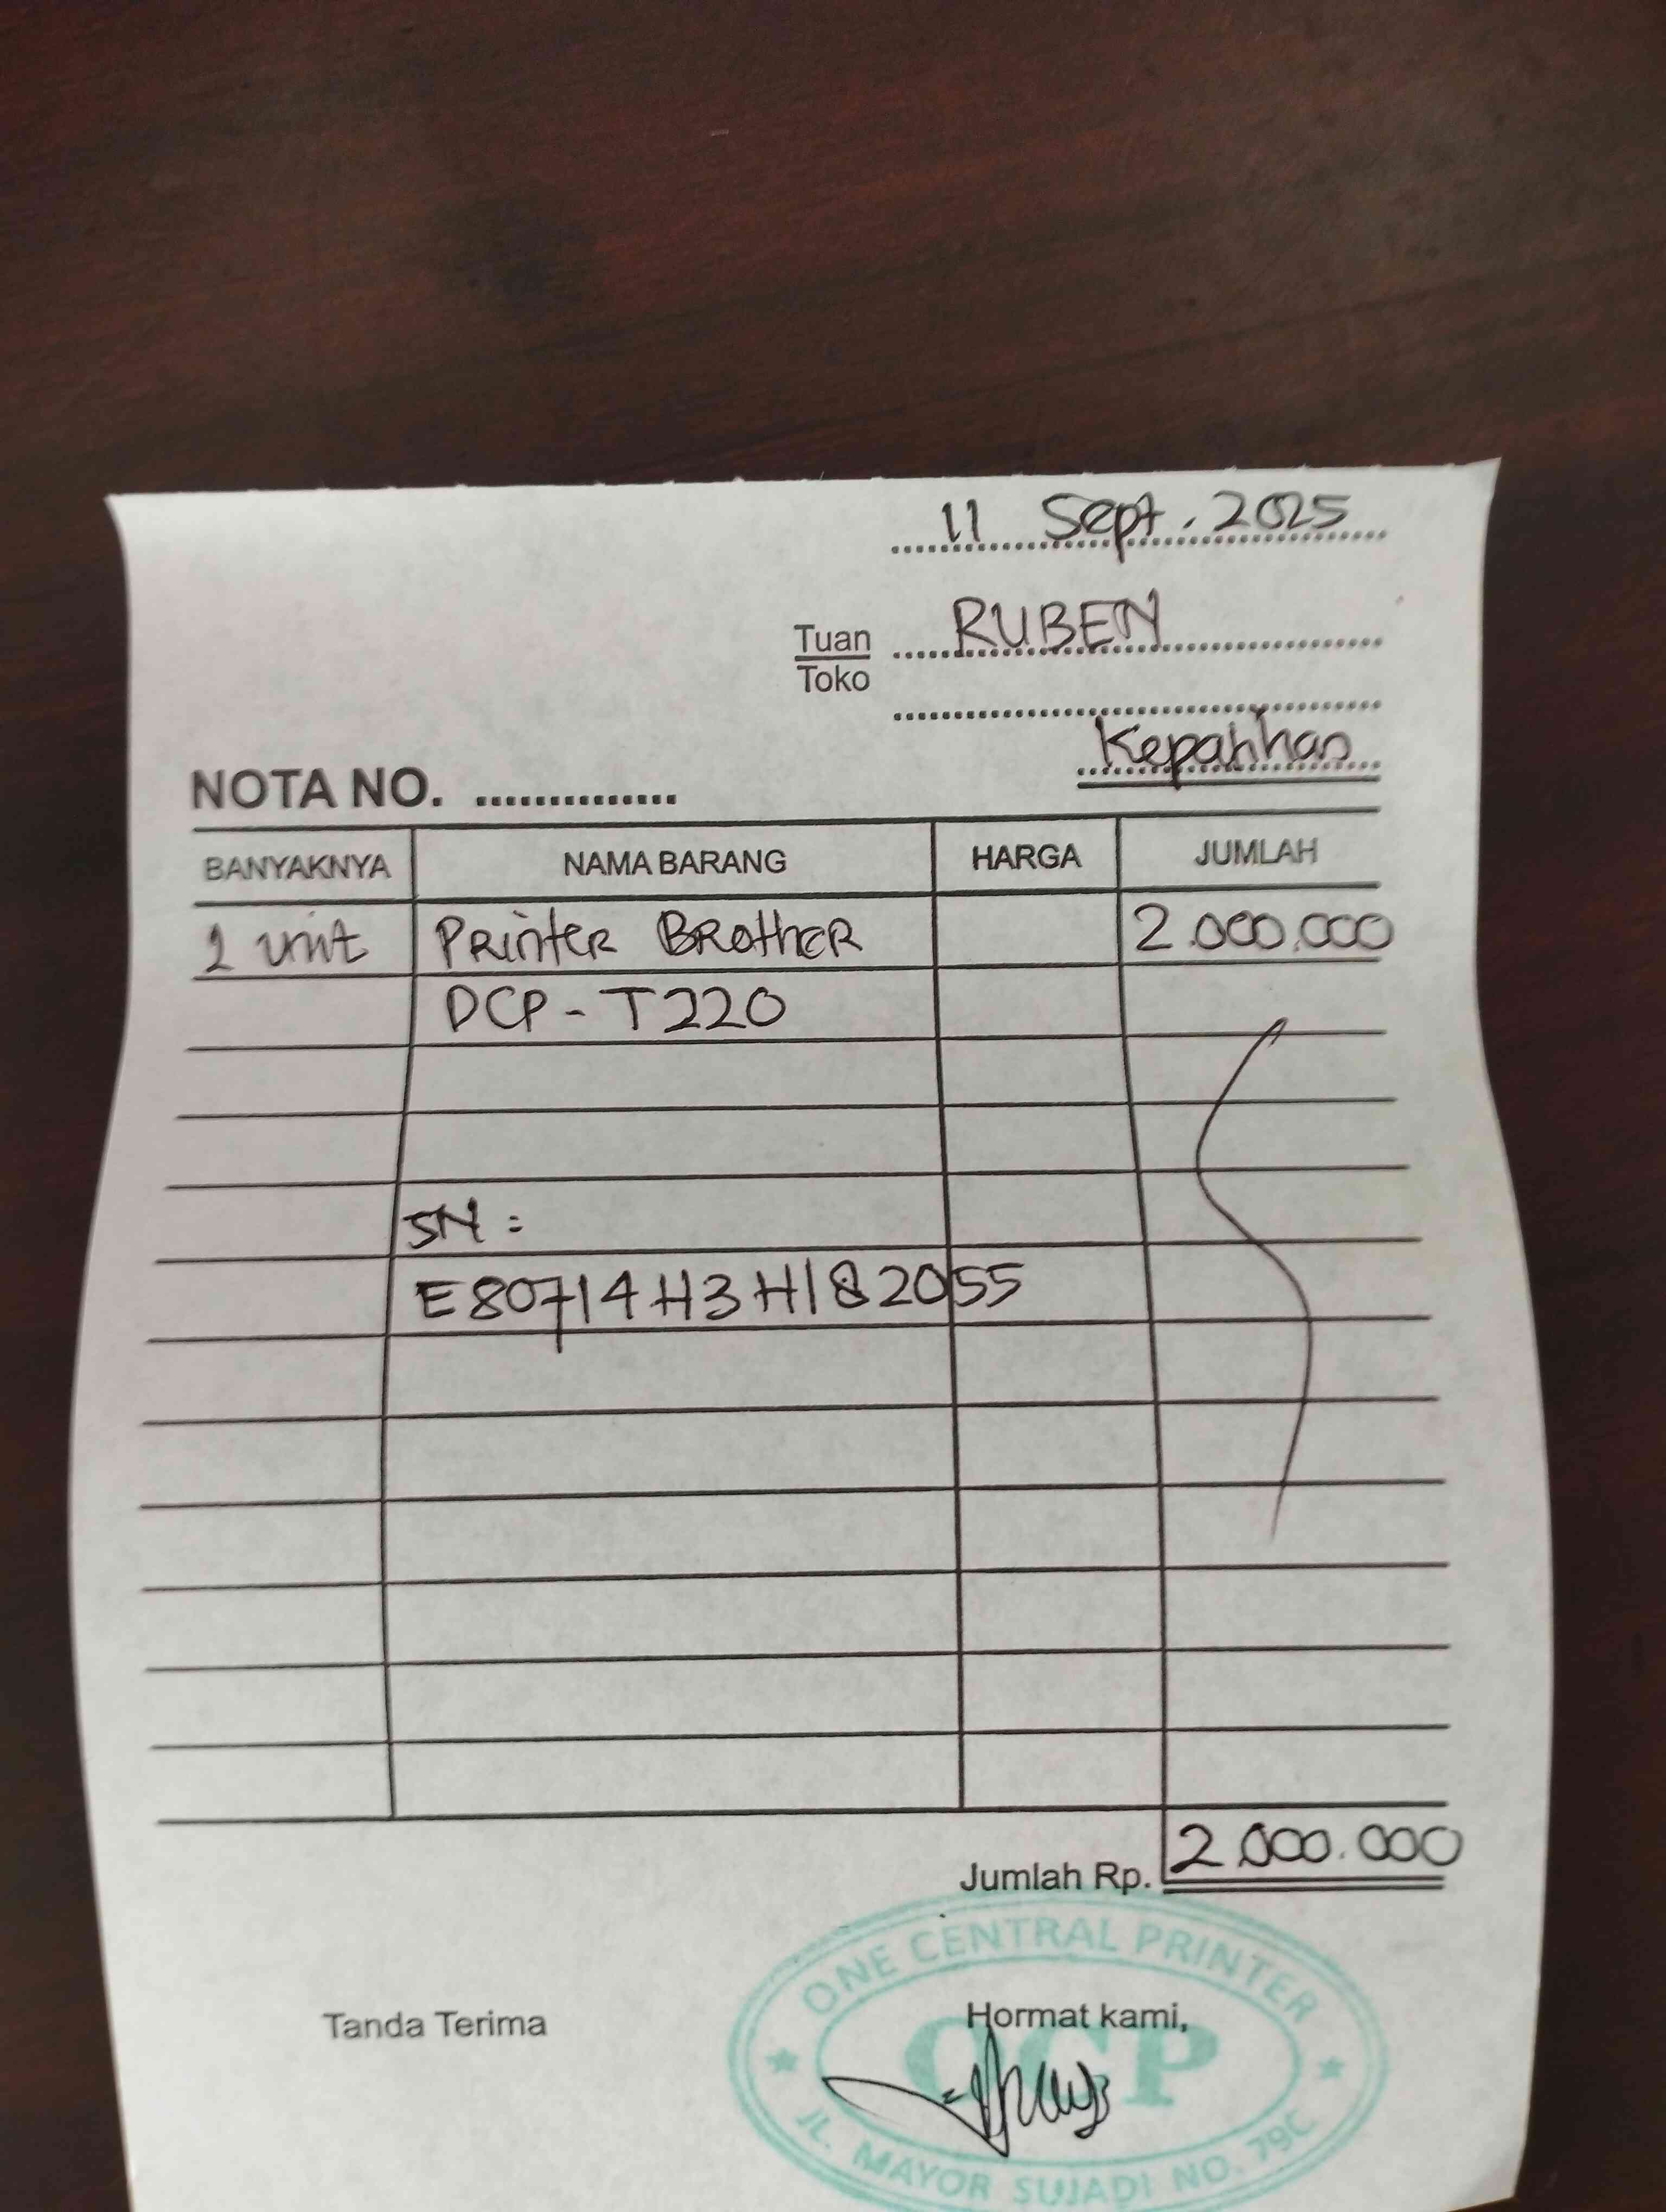 11 Sept. 2025
Tuan RUBEN
Toko
Kepatihan
NOTA NO. ..............
BANYAKNYA NAMA BARANG HARGA JUMLAH
1 unit Printer Brother 2.000.000
DCP - T220
SN :
E80714H3H182055
Jumlah Rp. 2.000.000
Tanda Terima Hormat kami,
ONE CENTRAL PRINTER
OCP
JL. MAYOR SUJADI NO. 79C